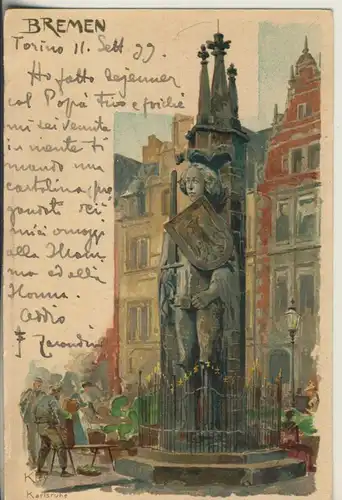 BREMEN
Torino 11. Sett. 99.
Ho fatto dejeuner
col Papà tuo e poiché
mi sei venuta
in mente ti
mando una
cartolina, pre
gandoti dei
miei omaggi
alla Mam
ma ed alla
Nonna.
Addio
Karlsruhe